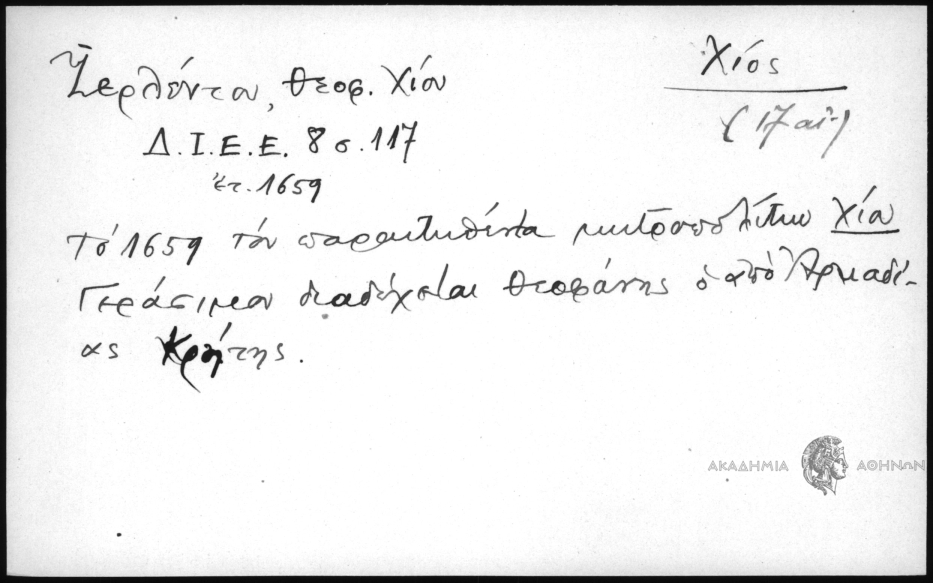 Χίος
(17 αἰ.)
Ζερλέντου, Θεοφ. Χίου
Δ.Ι.Ε.Ε. 8 σ. 117
ἔτ. 1659
Τό 1659 τόν παραιτηθέντα μητροπολίτην Χίου
Γεράσιμον διαδέχεται Θεοφάνης ὁ ἀπό Ἀρκαδί-
ας Κρήτης.
ΑΚΑΔΗΜΙΑ ΑΘΗΝΩΝ